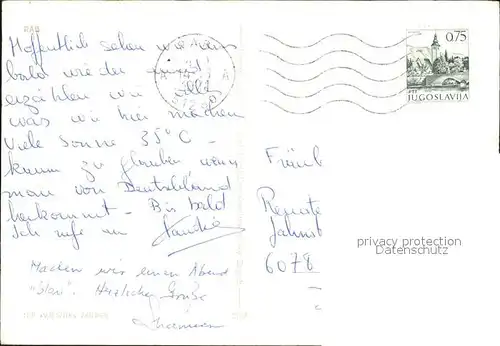 RAB
Hoffentlich sehen wir uns
bald wieder und
erzählen wir alles
was wir hier machen
Viele Sonne 35°C -
kaum zu glauben wenn
man von Deutschland
herkommt - Bis bald
Ich rufe an
Machen wir einen Abend
"Slavi". Herzliche Grüße
0,75
JUGOSLAVIJA
A
51280
Fräul
Renate
Jahnst
6078
privacy protection
Datenschutz